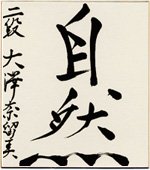 自然
二段 大澤奈留美